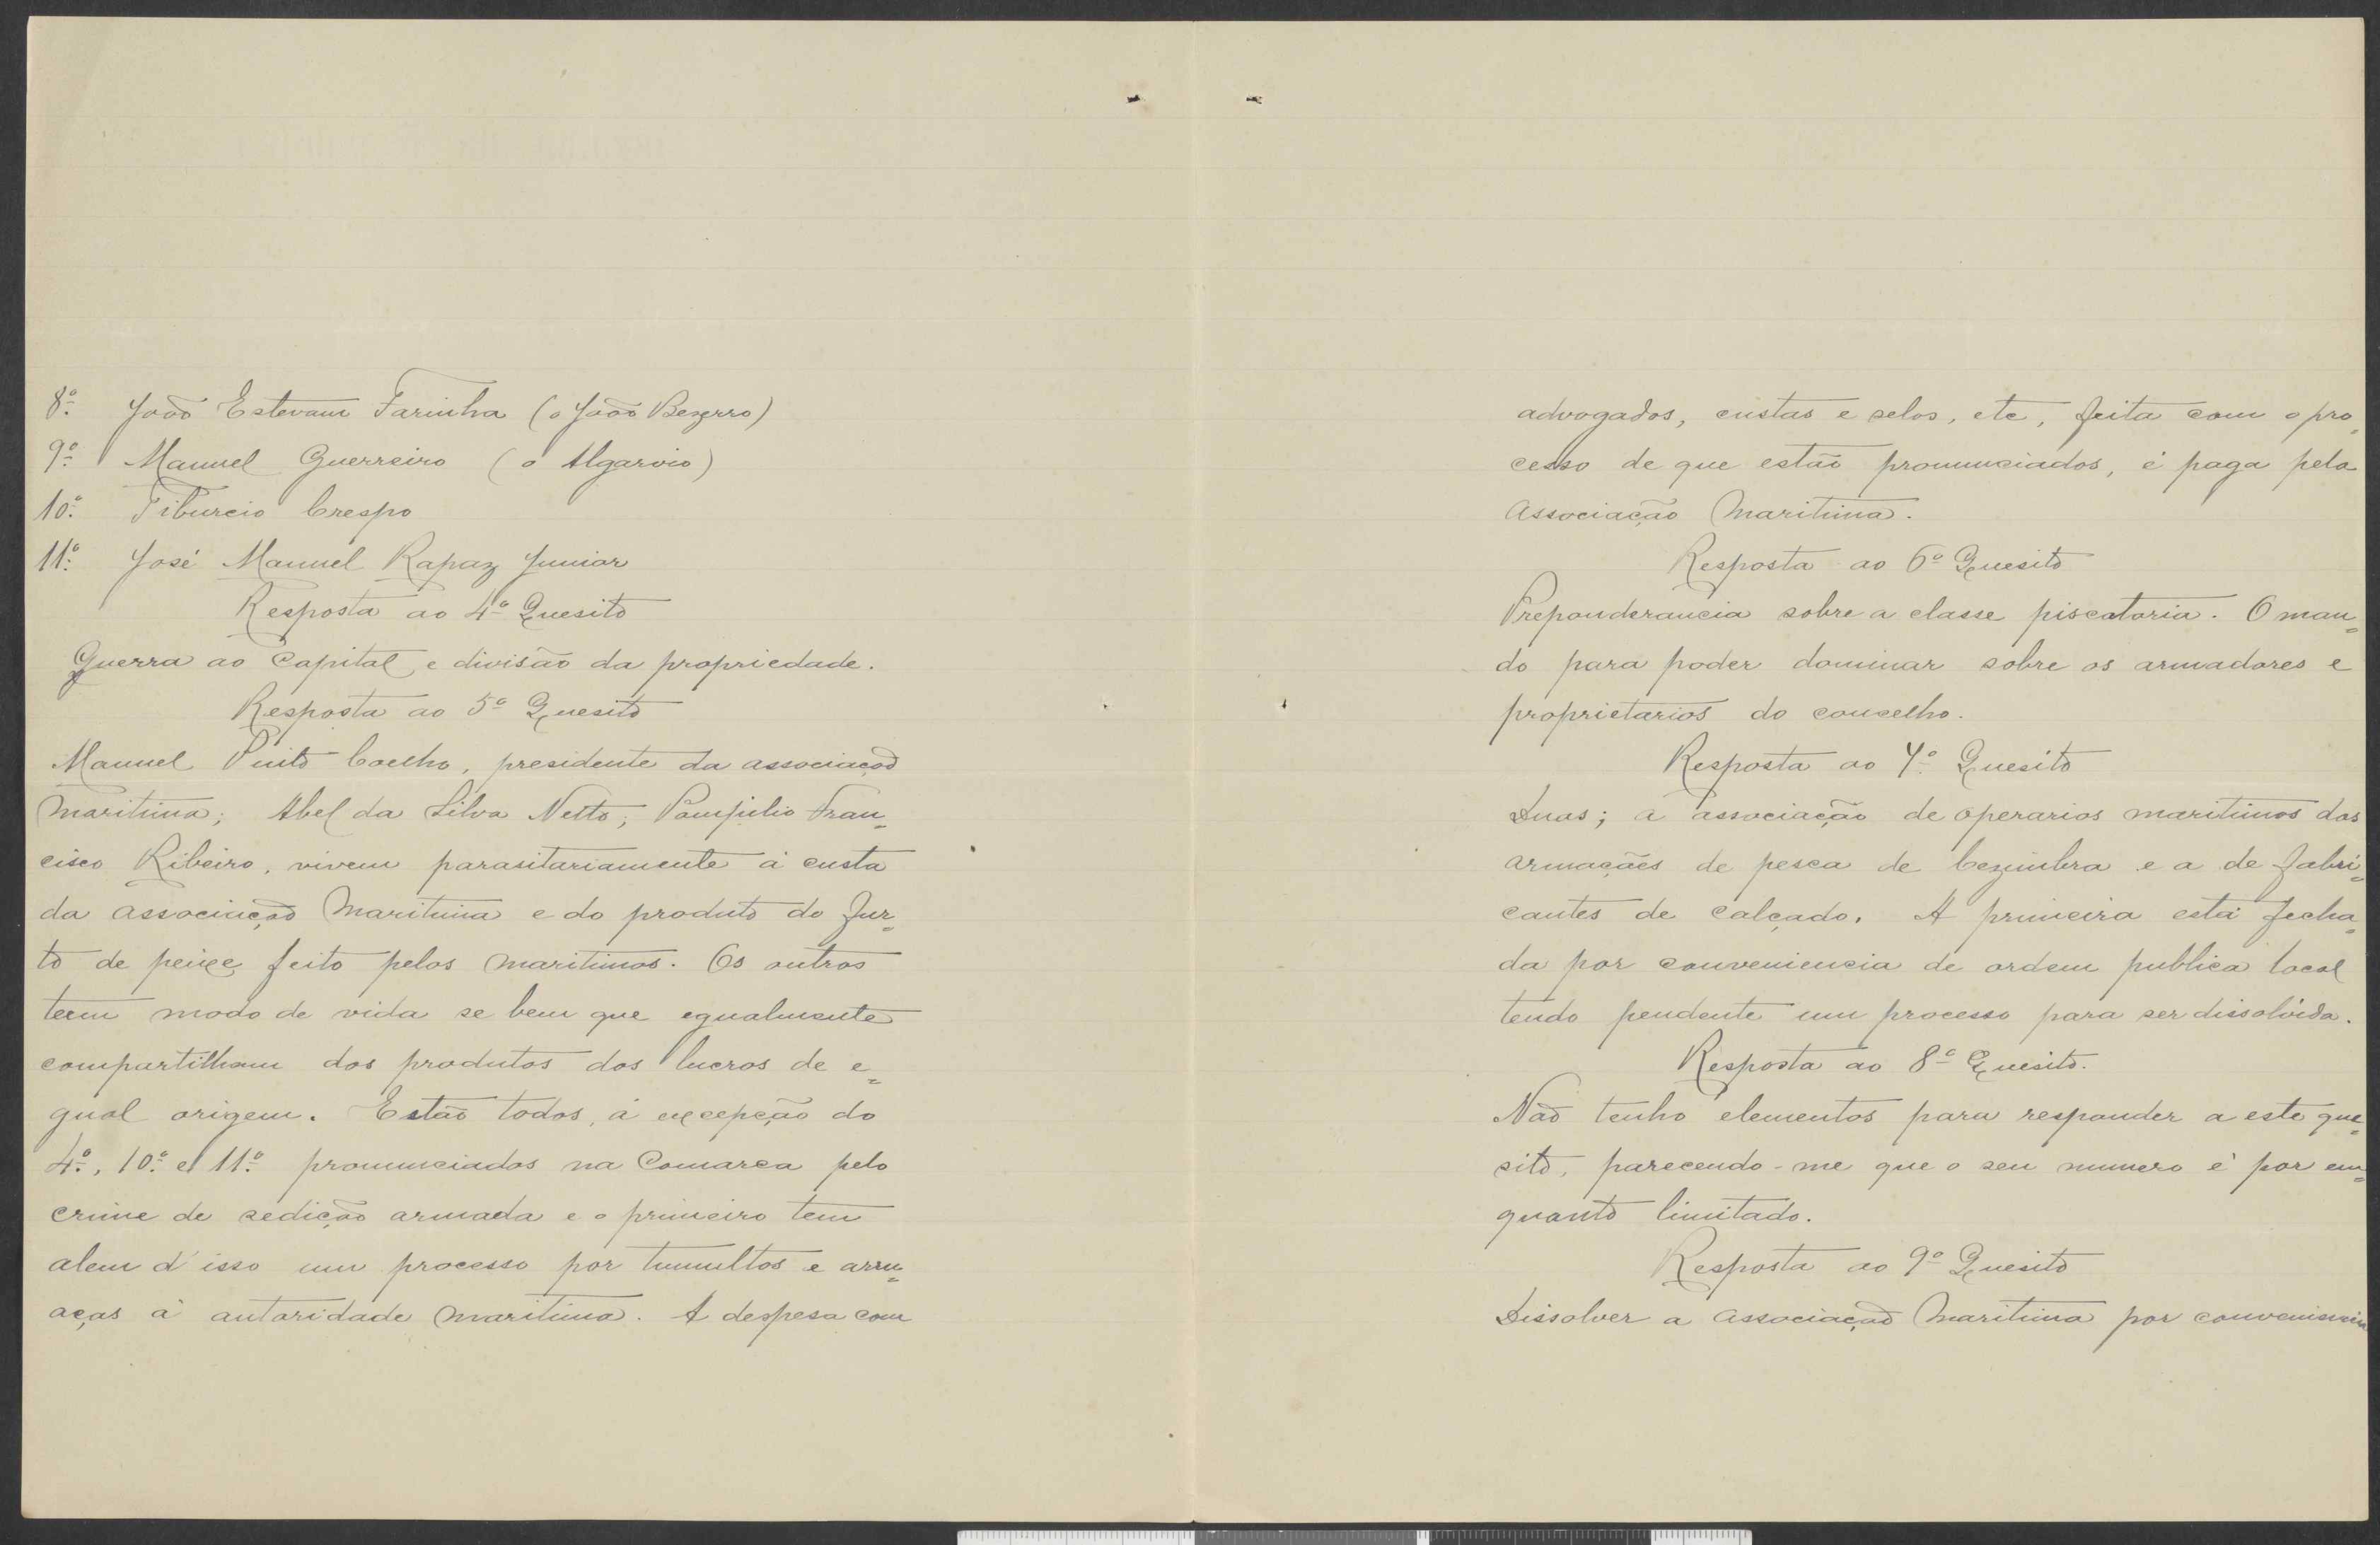 8º João Estevam Farinha (o João Bezerro)
9º Manuel Guerreiro (o Algarvio)
10º Tiburcio Crespo
11º José Manuel Rapaz Junior
Resposta ao 4º Quesito
Guerra ao Capital e divisão da propriedade.
Resposta ao 5º Quesito
Manuel Pinto Coelho, presidente da associação
Maritima; Abel da Silva Netto; Pompilio Fran=
cisco Ribeiro, vivem parasitariamente á custa
da associação Maritima e do produto do fur=
to de peixe feito pelos maritimos. Os outros
teem modo de vida se bem que egualmente
compartilham dos produtos dos lucros de e=
gual origem. Estão todos, á excepção do
4º, 10º e 11º pronunciados na Comarca pelo
crime de sedição armada e o primeiro tem
alem d'isso um processo por tumultos e arru=
aças á autoridade maritima. A despesa com
advogados, custas e selos, etc, feita com o pro=
cesso de que estão pronunciados, é paga pela
Associação Maritima.
Resposta ao 6º Quesito
Preponderancia sobre a classe piscatoria. O man=
do para poder dominar sobre os armadores e
proprietarios do concelho.
Resposta ao 7º Quesito
Duas; a associação de operarios maritimos das
armações de pesca de Cezimbra e a de fabri=
cantes de calçado. A primeira está fecha=
da por conveniencia de ordem publica local
tendo pendente um processo para ser dissolvida.
Resposta ao 8º Quesito.
Não tenho elementos para responder a este que=
sito, parecendo-me que o seu numero é por em=
quanto limitado.
Resposta ao 9º Quesito
Dissolver a associação Maritima por conveniencia